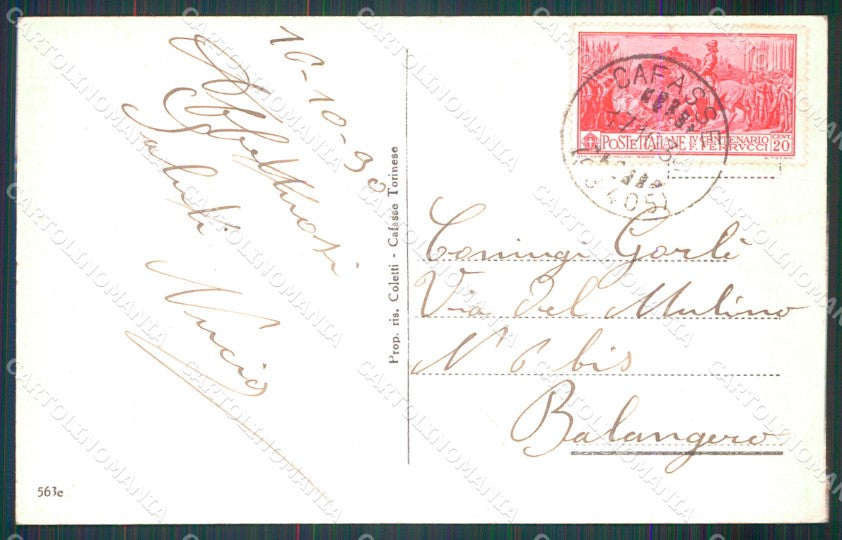 16-10-30
Affettuosi
Saluti
Nucio
Prop. ris. Coletti - Cafasse Torinese
563c
CAFASSE
POSTE ITALIANE IV CENTENARIO CENT.
DI F. FERRUCCI 20
Via del Mulino
N° 6 bis
Balangero
CARTOLINOMANIA